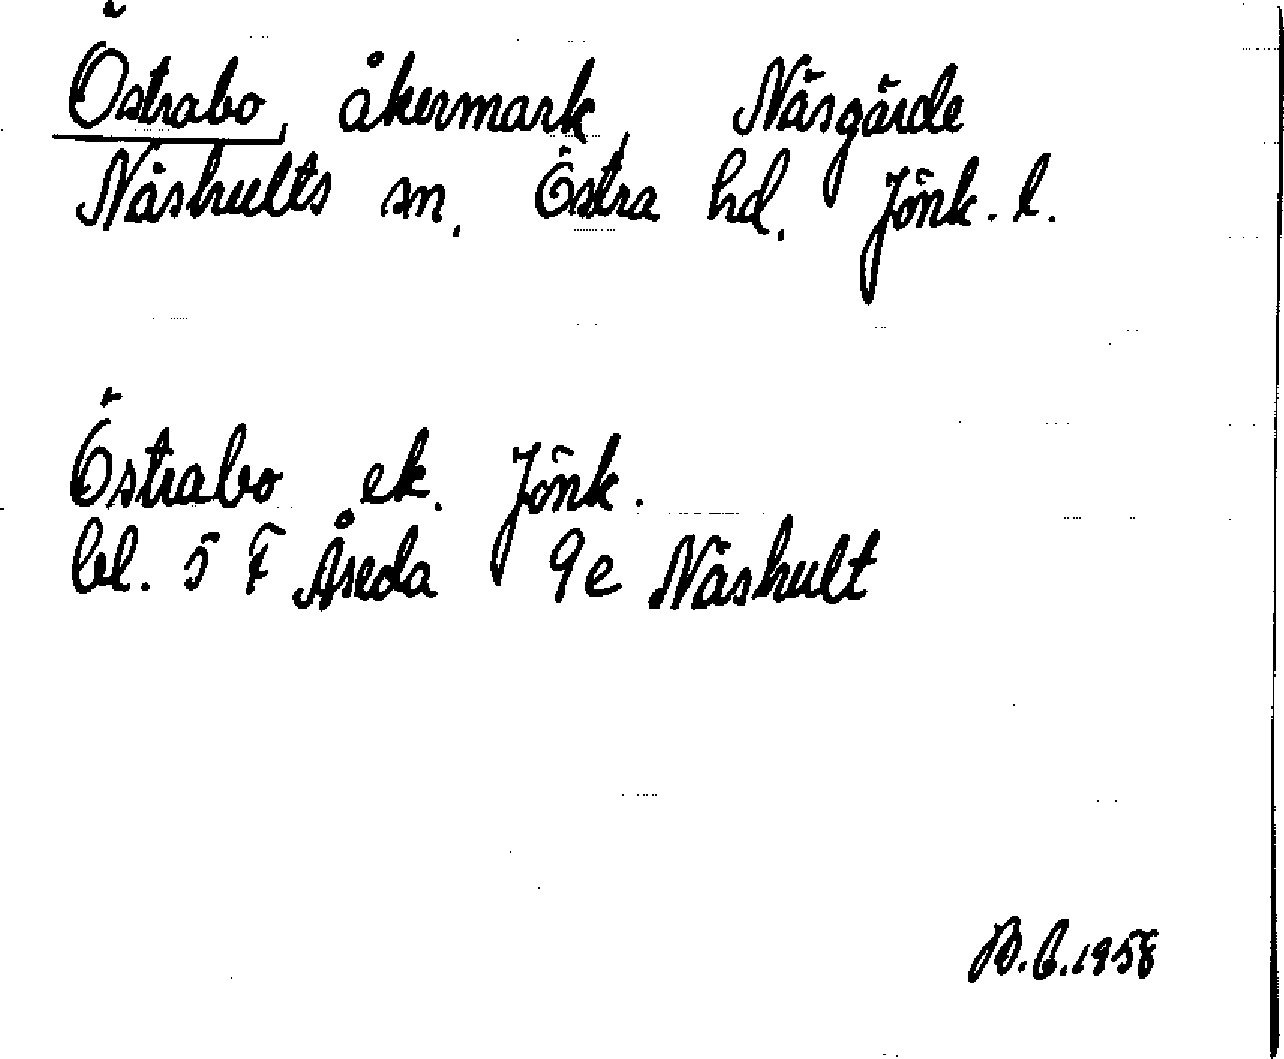 Östrabo, åkermark, Näsgärde
Näshults sn, Östra hd, Jönk. l.
Östrabo ek. Jönk.
bl. 5 F Åseda 9e Näshult
B.C.1958